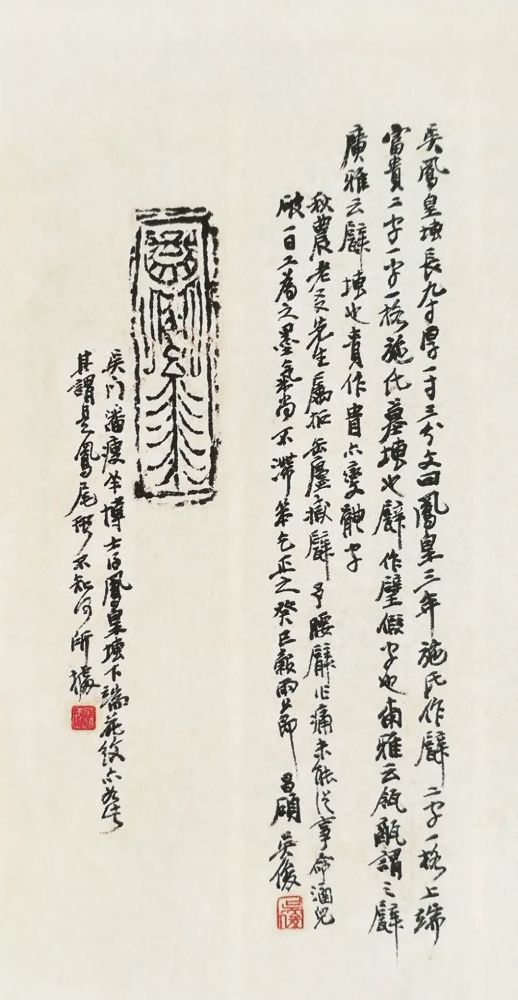 吳鳳皇塼長九寸厚一寸三分文曰鳳皇三年施氏作甓二字一格上端
富貴二字一字一格施氏墓塼也甓作壁假字也爾雅云瓴甋謂之甓
廣雅云甓塼也貴作貴亦變體字
秋農老友先生屬拓缶廬藏甓予腰臂作痛未能從事命涵兒
破一日工為之墨氣尚不滯笨乞正之癸巳穀雨旦節 昌碩吳俊
吳門潘瘦羊博士得鳳皇塼下端花紋亦如此
其謂是鳳尾形不知何所據